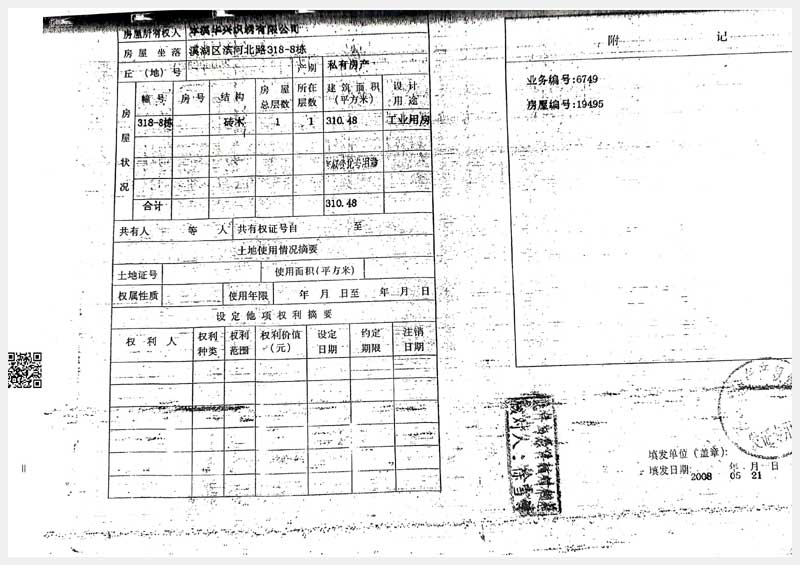 房屋所有权人 本溪华兴织绣有限公司
房屋坐落 溪湖区滨河北路318-8栋
丘（地）号 产别 私有房产
房屋状况
幢号 房号 结构 房屋总层数 所在层数 建筑面积（平方米） 设计用途
318-8栋 砖木 1 1 310.48 工业用房
合计 310.48
共有人 等 人 共有权证号自 至
土地使用情况摘要
土地证号 使用面积（平方米）
权属性质 使用年限 年 月 日至 年 月 日
设定他项权利摘要
权利人 权利种类 权利范围 权利价值（元） 设定日期 约定期限 注销日期
附 记
业务编号:6749
房屋编号:19495
核对人：徐雪
填发单位（盖章）：
填发日期: 2008 年 05 月 21 日